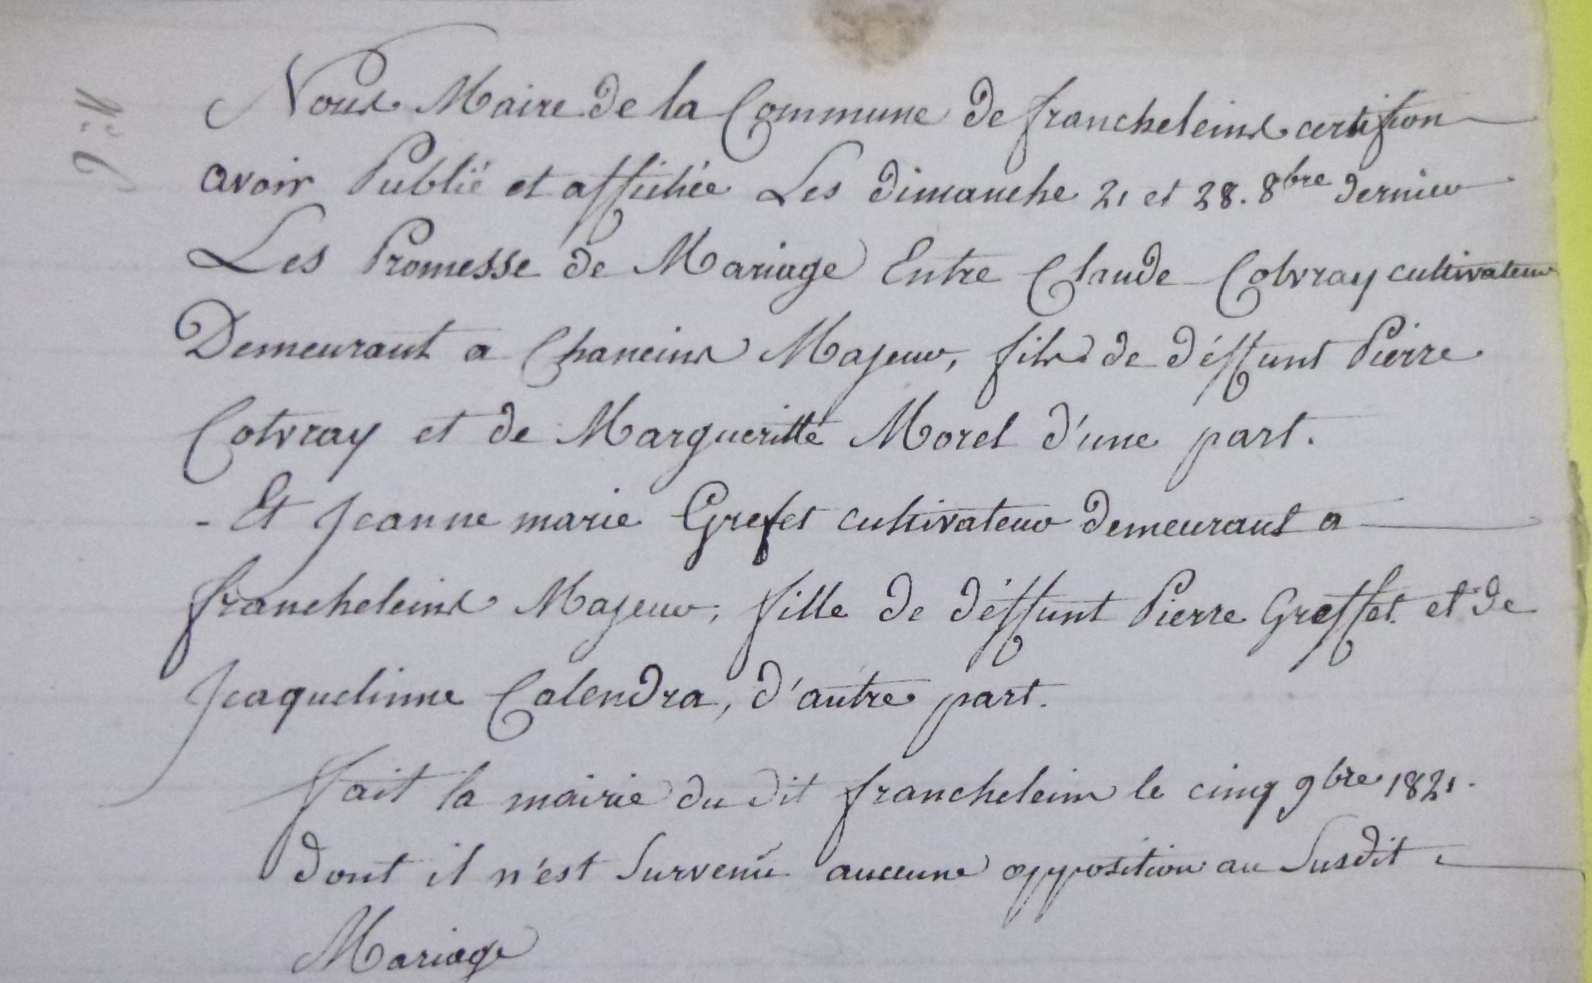 Nous Maire de la Commune de francheleins certifion
avoir Publié et affichée Les dimanche 21 et 28. 8bre dernier
Les Promesse de Mariage Entre Claude Cotvray cultivateur
Demeurant a Chaneins Majeur, fils de déffunt Pierre
Cotvray et de Margueritte Morel d'une part.
- Et Jeanne marie Grefet cultivateur demeurant a
francheleins Majeur, fille de déffunt Pierre Greffet et de
Jeaquelinne Calendra, d'autre part.
fait la mairie du dit francheleins le cinq 9bre 1821.
dont il n'est Survenu aucune opposition au Susdit
Mariage